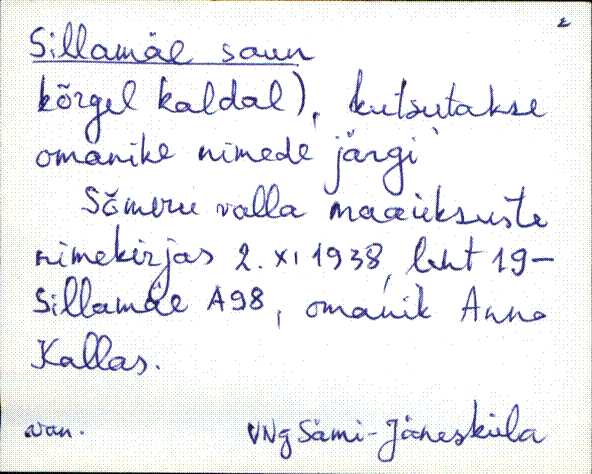 2
Sillamäe saun
kõrgel kaldal), kutsutakse
omanike nimede järgi
Sõmeru valla maaüksuste
nimekirjas 2. XI 1938, leht 19-
Sillamäe A98, omanik Anna
Kallas.
van. VNg Sämi-Jäneskula